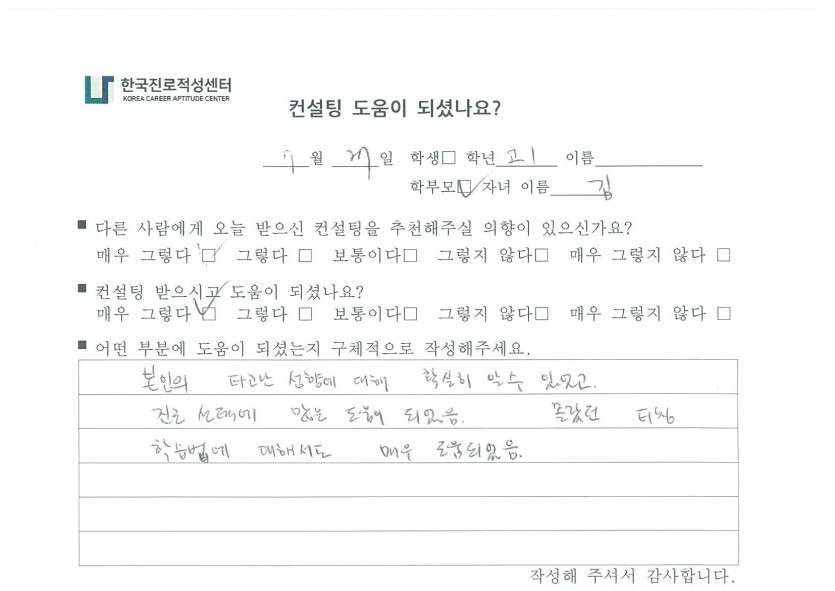 한국진로적성센터
KOREA CAREER APTITUDE CENTER
컨설팅 도움이 되셨나요?
7월 27일 학생□ 학년 고1 이름
학부모☑ 자녀 이름 김
■ 다른 사람에게 오늘 받으신 컨설팅을 추천해주실 의향이 있으신가요?
매우 그렇다 ☑ 그렇다 □ 보통이다□ 그렇지 않다□ 매우 그렇지 않다 □
■ 컨설팅 받으시고 도움이 되셨나요?
매우 그렇다 ☑ 그렇다 □ 보통이다□ 그렇지 않다□ 매우 그렇지 않다 □
■ 어떤 부분에 도움이 되셨는지 구체적으로 작성해주세요.
본인의 타고난 성향에 대해 확실히 알수 있었고.
진로 선택에 많은 도움이 되었음. 몰랐던
학습법에 대해서도 매우 도움되었음.
작성해 주셔서 감사합니다.